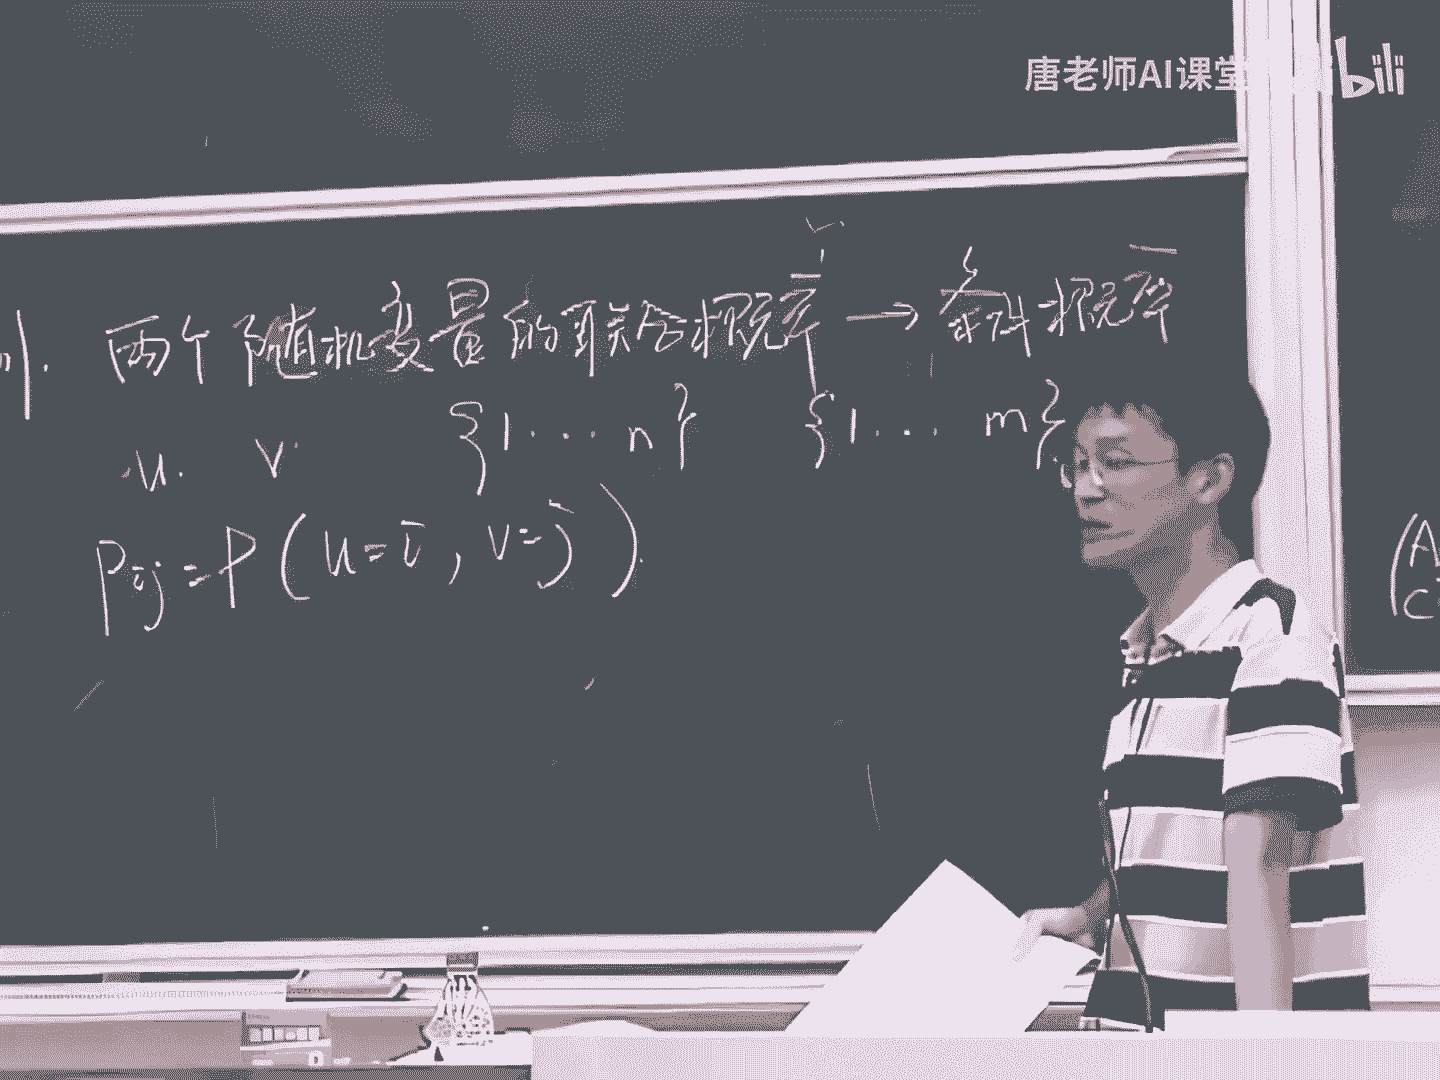 唐老师AI课堂 bili
例. 两个随机变量的联合概率 → 条件概率
u. v. {1 ... n} {1 ... m}
Pij = P(u=i, v=j).
(A
C